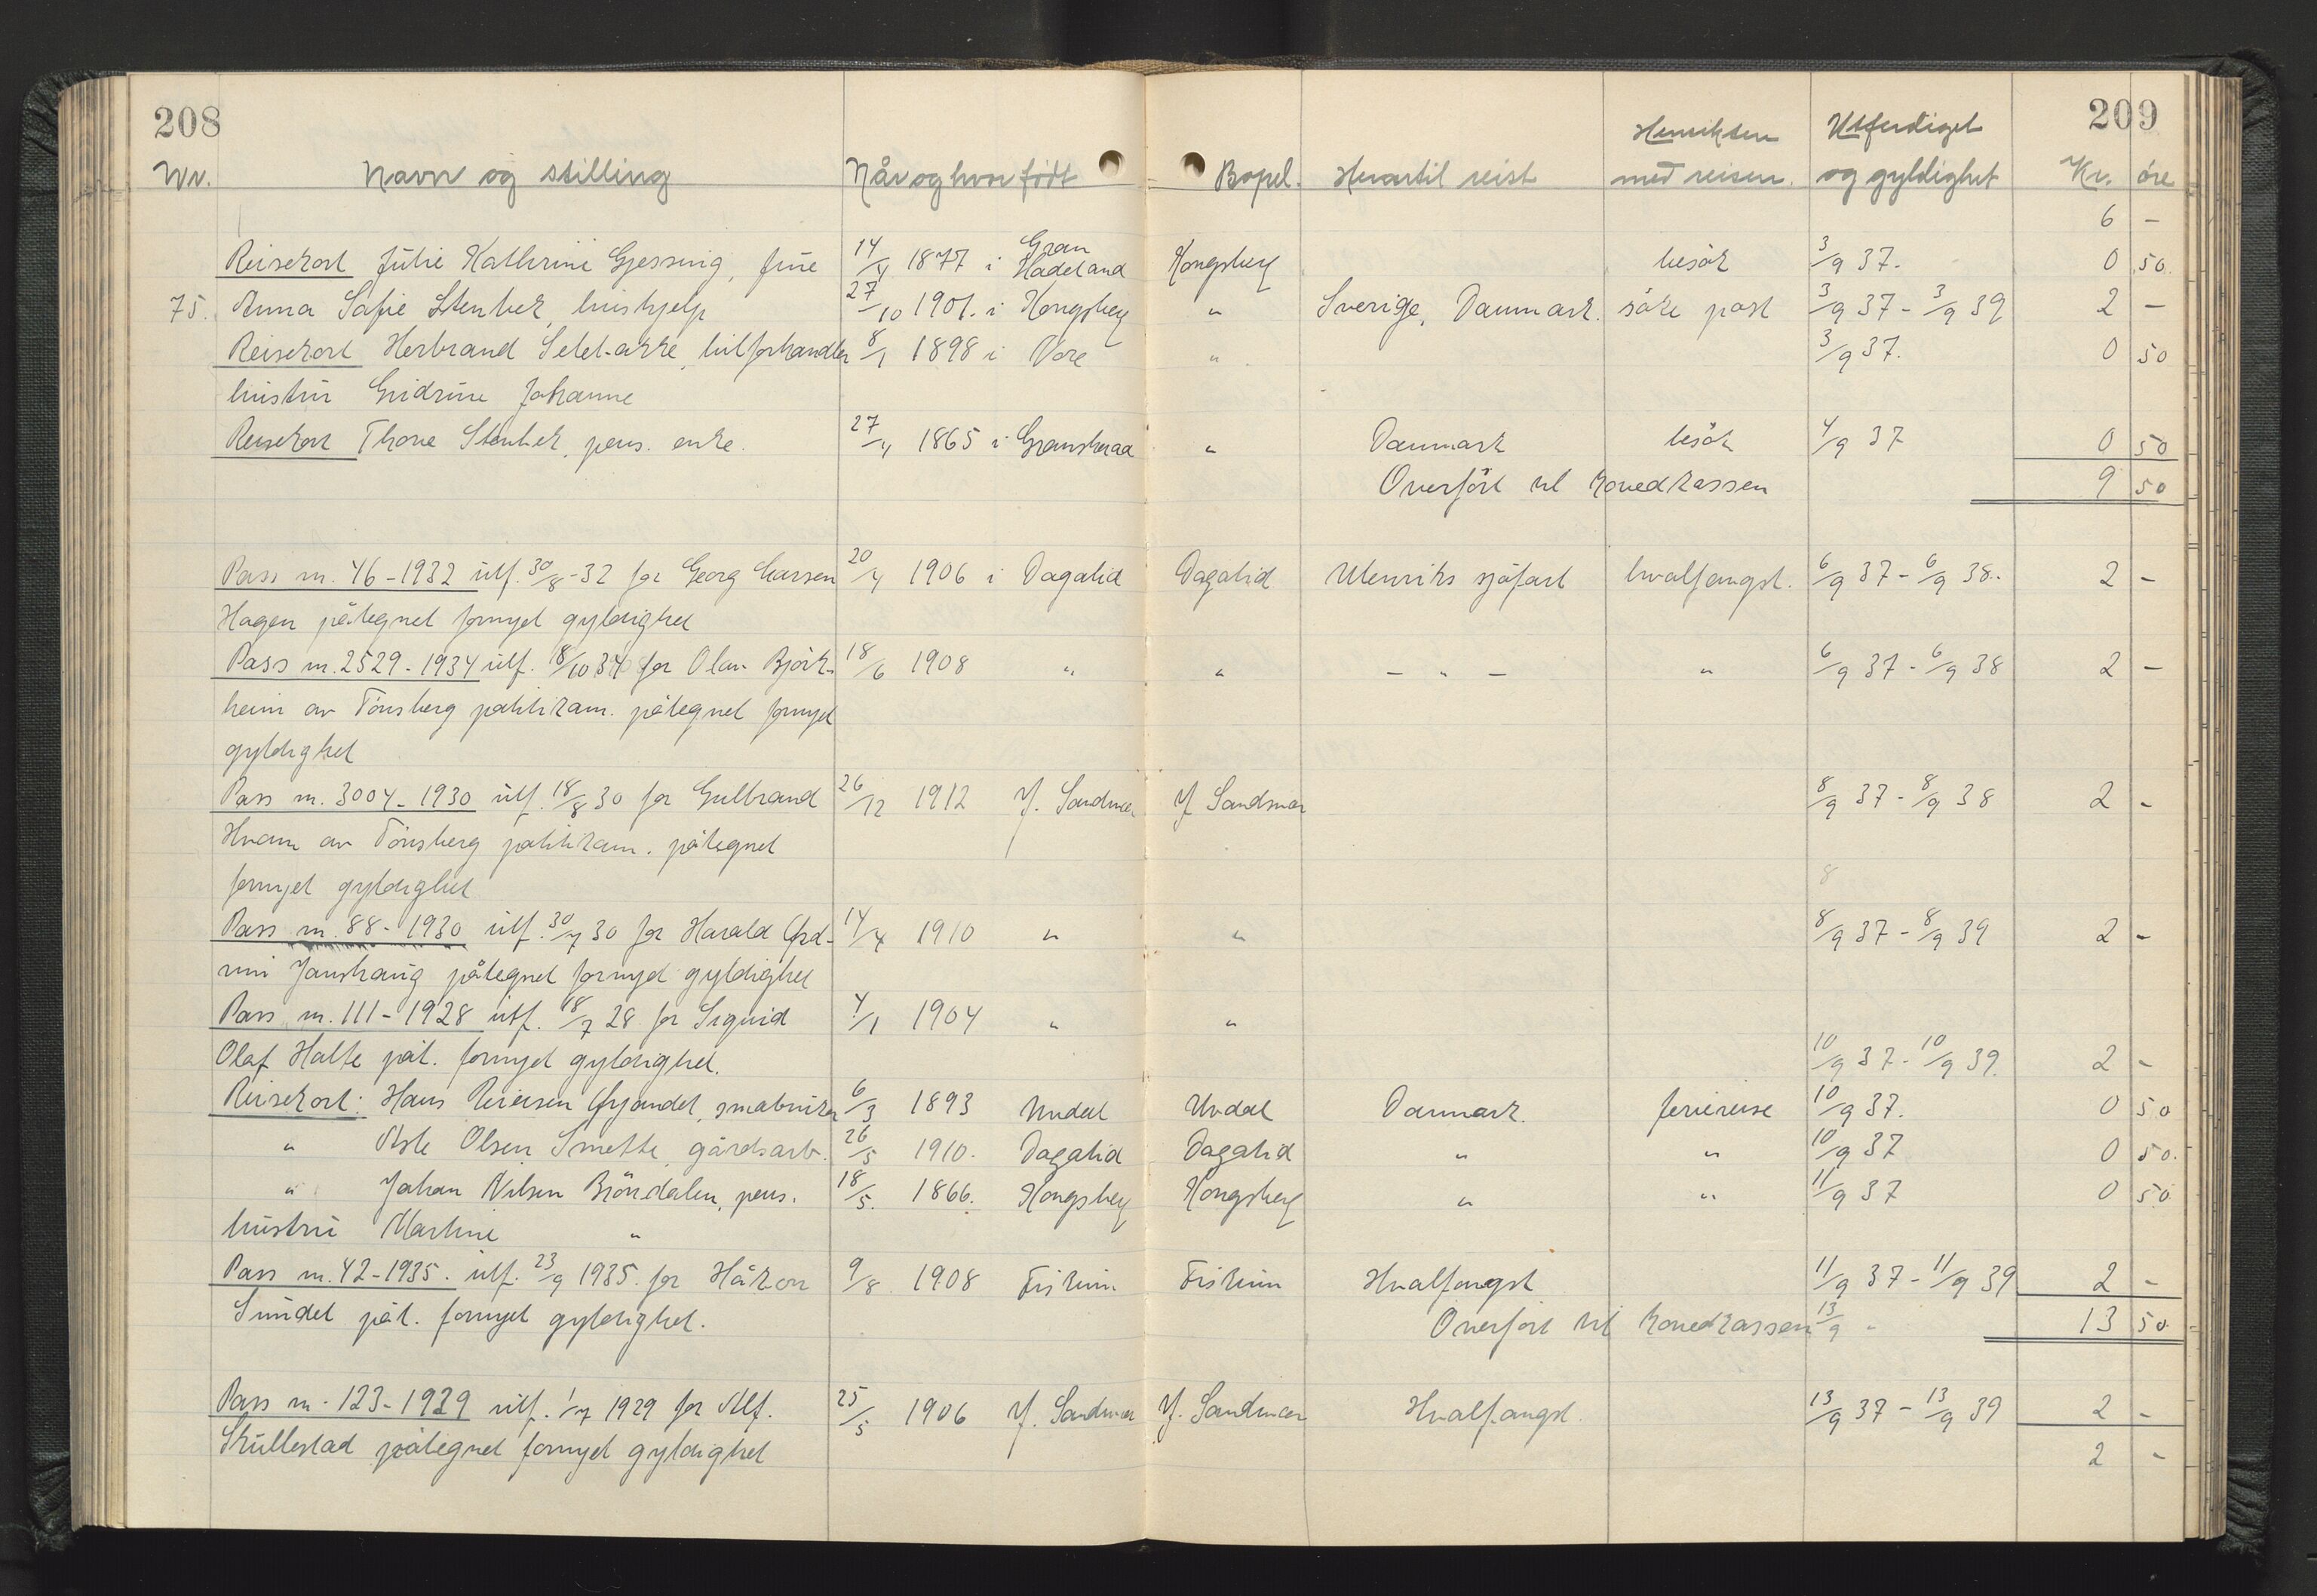 208
209
Nr. Navn og stilling Når og hvor født Bopel. Hvortil reist Hensikten med reisen. Utferdiget og gyldighet Kr. öre
6 -
Reisekort Julie Kathrine Gjessing, frue 14/4 1877 i Gran Hadeland Kongsberg besök 3/9 37. 0 50.
75. Anna Sofie Stenbek, hushjelp 27/10 1901. i Kongsberg " Sverige, Danmark. söke post 3/9 37 - 3/9 39 2 -
Reisekort Herbrand bilforhandler 8/1 1898 i Nore " 3/9 37. 0 50
hustru Gudrune Johanne
Reisekort Thone Stenbek, pens. enke. 27/4 1865 i Gransherad " Danmark besök 4/9 37 0 50
Overfört til hovedkassen 9 50
Pass nr. 46-1932 utf. 30/8-32 for Georg Larsen 20/4 1906 i Dagalid Dagalid Utenriks sjöfart hvalfangst. 6/9 37 - 6/9 38. 2 -
Hagen påtegnet fornyet gyldighet
Pass nr. 2529-1934 utf. 8/10 34 for Olav Björk- 18/6 1908 " " - " - " 6/9 37 - 6/9 38 2 -
heim av Tönsberg politikam. påtegnet fornyet
gyldighet
Pass nr. 3004-1930 utf. 18/8 30 for Gulbrand 26/12 1912 Y. Sandsver Y. Sandsver 8/9 37 - 8/9 38 2 -
Hvam av Tönsberg politikam. påtegnet
fornyet gyldighet 8
Pass nr. 88-1930 utf. 30/7 30 for Harald 14/4 1910 " " 8/9 37 - 8/9 39 2 -
Janshaug påtegnet fornyet gyldighet
Pass nr. 111-1928 utf. 18/7 28 for Sigurd 4/1 1904 " "
Olaf Holte påt. fornyet gyldighet. 10/9 37 - 10/9 39. 2 -
Reisekort: Hans Reiersen småbruker 6/3 1893 Uvdal Uvdal Danmark. feriereise 10/9 37. 0 50
" Asle Olsen Smette, gårdsarb. 26/5 1910. Dagalid Dagalid " " 10/9 37 0 50.
" Johan Nilsen Bröndalen, pens. 18/5. 1866. Kongsberg Kongsberg " " 11/9 37 0 50
hustru Martine "
Pass nr. 42-1935. utf. 23/9 1935. for Håkon 9/8. 1908 Fiskum Fiskum Hvalfangst 11/9 37 - 11/9 39 2 -
Sundet påt. fornyet gyldighet. Overfört til hovedkassen 13/9 - 13 50.
Pass nr. 123-1929 utf. 1/7 1929 for Alf. 25/5 1906 Y. Sandsver Y. Sandsver Hvalfangst. 13/9 37 - 13/9 39 2 -
Skullestad påtegnet fornyet gyldighet 2 -